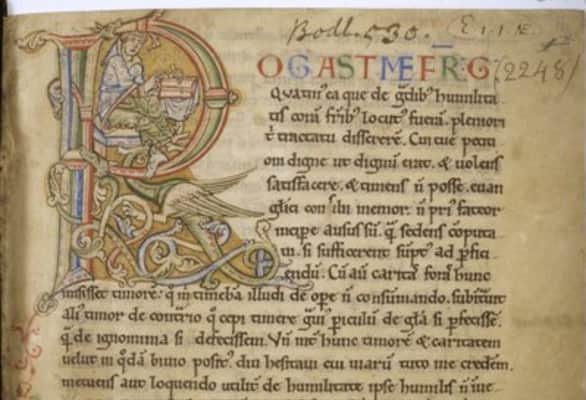 Bodl. 530. E. 1. 1. (2248)
ROGASTI ME FR̄. G.
Quatin' ea que de g̃dib' humilita
tis corā fr̃ib' locut' fuerā. pleniori
t̃ tractatu dissererē. Cui tue petiti
oni digne ut dignū erat. & uolens
satisfacere. & timens ñ posse. euan
glici consilii memor. ñ pri' fateor
incipe ausus sū. q̃ sedens cōputa
ui. si sufficerent sūpt' ad p̃fici
endū. Cū aū caritas foras hunc
misisset timorē. q̊ m̃ timebā illudi de ope ñ consūmando. subintuit
ali' timor de cont̃rio q̊ cepi timere g̃ui' piculū de gl̃a si pfecissē.
q̃ de ignominia si defecissem. Vñ int̃ hunc timorē & caritatem
uelut in q̊dā biuio posit' diu hesitaui cui uiarū tuto me crederem.
metuens aut loquendo utilit̃ de humilitate ipse humilis ñ inue